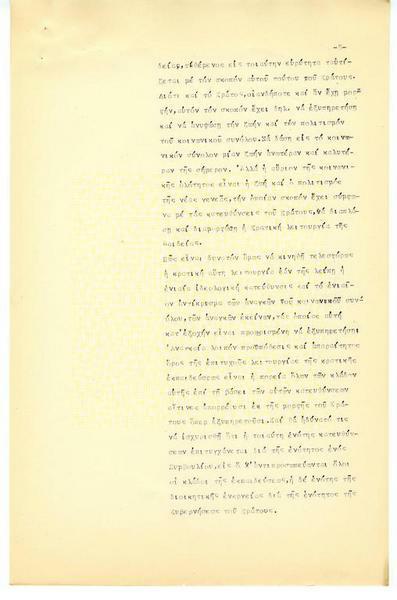 -5-
δείας, τιθέμενος εἰς τοιαύτην εὐρύτητα ταυτί-
ζεται μέ τόν σκοπόν αὐτοῦ τούτου τοῦ Κράτους.
Διότι καί τό Κράτος, οἱανδήποτε καί ἄν ἔχῃ μορ-
φήν, αὐτόν τόν σκοπόν ἔχει δηλ. νά ἐξυπηρετήσῃ
καί νά ἀνυψώσῃ τήν ζωήν καί τόν πολιτισμόν
τοῦ κοινωνικοῦ συνόλου. Νά δώσῃ εἰς τό κοινω-
νικόν σύνολον μίαν ζωήν ἀνωτέραν καί καλυτέ-
ραν τῆς σήμερον. Ἀλλά ἡ αὔριον τῆς κοινωνι-
κῆς ὁλότητος εἶναι ἡ ζωή καί ὁ πολιτισμός
τῆς νέας γενεᾶς, τήν ὁποίαν σκοπόν ἔχει σύμφω-
να μέ τάς κατευθύνσεις τοῦ Κράτους, θά διαπλά-
σῃ καί διαμορφώσῃ ἡ κρατική λειτουργία τῆς
παιδείας.
Πῶς εἶναι δυνατόν ὅμως νά κινηθῇ τελεσφόρως
ἡ κρατική αὕτη λειτουργία ἐάν τῆς λείπῃ ἡ
ἑνιαία ἰδεολογική κατεύθυνσις καί τό ἑνιαῖ-
ον ἀντίκρισμα τῶν ἀναγκῶν τοῦ κοινωνικοῦ συν-
όλου, τῶν ἀναγκῶν ἐκείνων, τάς ὁποίας αὐτή
κατ' ἐξοχήν εἶναι προωρισμένη νά ἐξυπηρετήσῃ;
Ἀναγκαία λοιπόν προϋπόθεσις καί ἀπαραίτητος
ὅρος τῆς ἐπιτυχοῦς λειτουργίας τῆς κρατικῆς
ἐκπαιδεύσεως εἶναι ἡ πορεία ὅλων τῶν κλάδων
αὐτῆς ἐπί τῇ βάσει τῶν αὐτῶν κατευθύνσεων
αἵτινες ἀπορρέουσι ἐκ τῆς μορφῆς τοῦ Κρά-
τους ὅπερ ἐξυπηρετοῦσι. Καί θά ἠδύνατό τις
νά ἰσχυρισθῇ ὅτι ἡ τοιαύτη ἑνότης κατευθύν-
σεων ἐπιτυγχάνεται διά τῆς ἑνότητος ἑνός
Συμβουλίου, εἰς ὅ θ' ἀντιπροσωπεύωνται ὅλοι
οἱ κλάδοι τῆς ἐκπαιδεύσεως, ἡ δέ ἑνότης τῆς
διοικητικῆς ἐνεργείας διά τῆς ἑνότητος τῆς
Κυβερνήσεως τοῦ Κράτους.